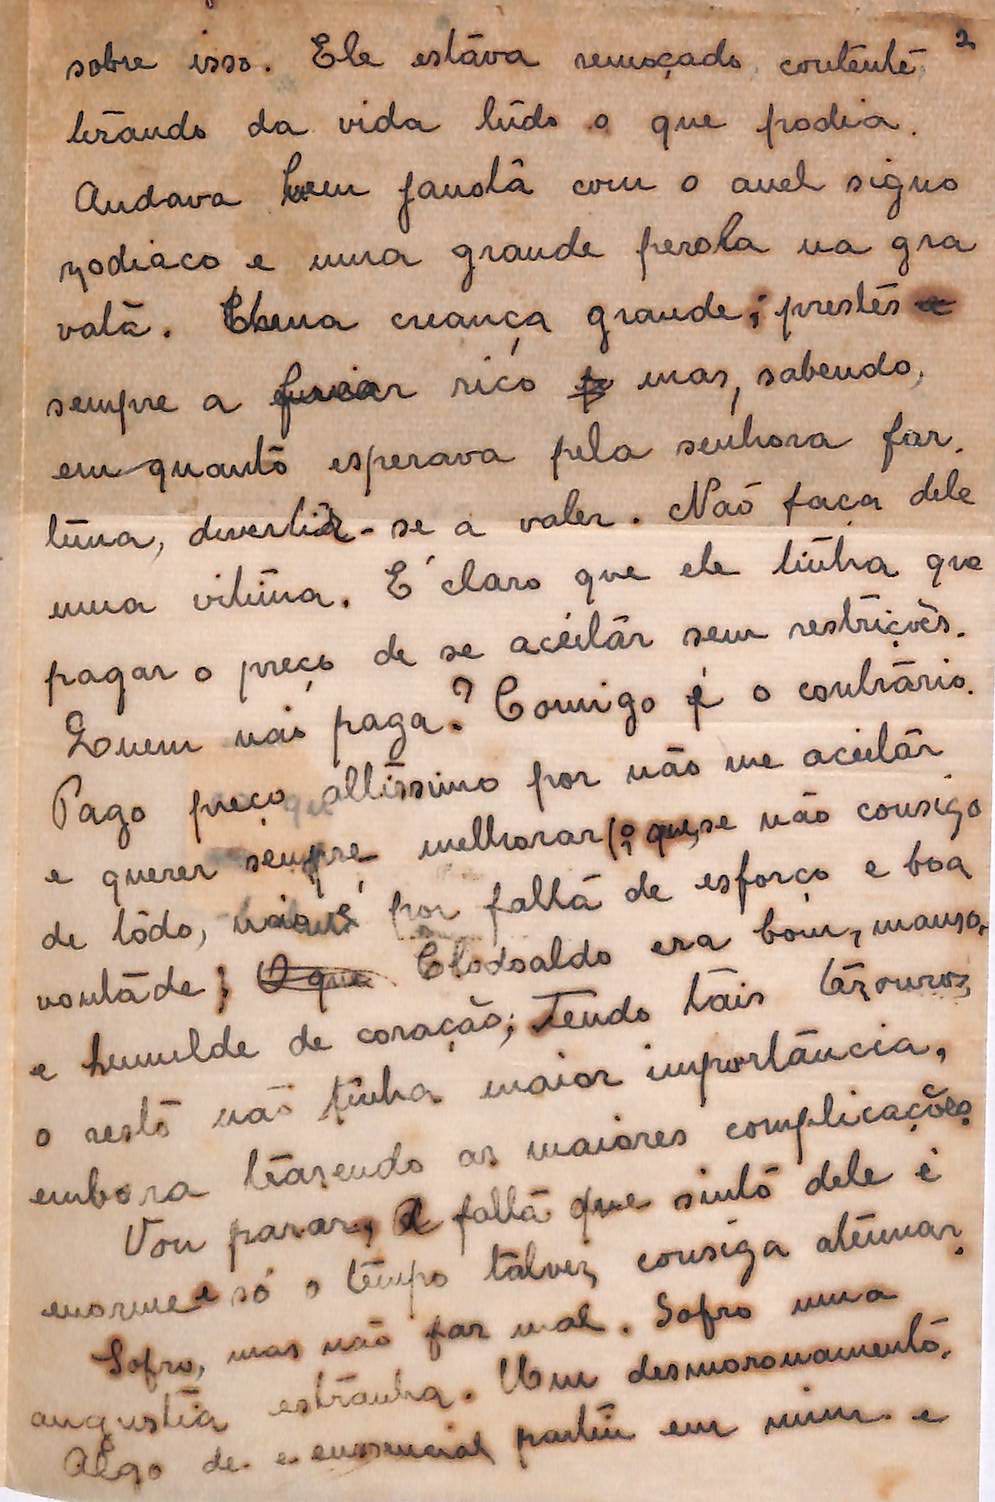 2
sobre isso. Ele estava remoçado, contente
tirando da vida tudo o que podia.
Andava bem janota com o anel signo
zodiaco e uma grande perola na gra
vata. Uma criança grande; prestes
sempre a ficar rico mas, sabendo,
em quanto esperava pela senhora for.
tuna, divertir-se a valer. Não faça dele
uma vitima. E' claro que ele tinha que
pagar o preço de se aceitar sem restrições.
Quem não paga? Comigo é o contrário.
Pago preço altissimo por não me aceitar
e querer sempre melhorar; que, se não consigo
de todo, não é por falta de esforço e boa
vontade; O que Clodoaldo era bom, manso,
e humilde de coração; Tendo tais tezouros,
o resto não tinha maior importância,
embora trazendo as maiores complicações.
Vou parar, A falta que sinto dele é
enorme e só o tempo talvez consiga atenuar.
Sofro, mas não faz mal. Sofro uma
angustia estranha. Um desmoronamento.
Algo de essencial partiu em mim e